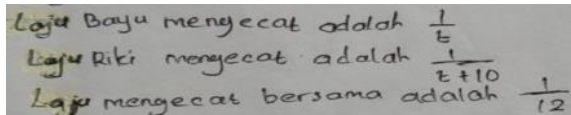 Laju Bayu mengecat adalah 1/t
Laju Riki mengecat adalah 1/t+10
Laju mengecat bersama adalah 1/12